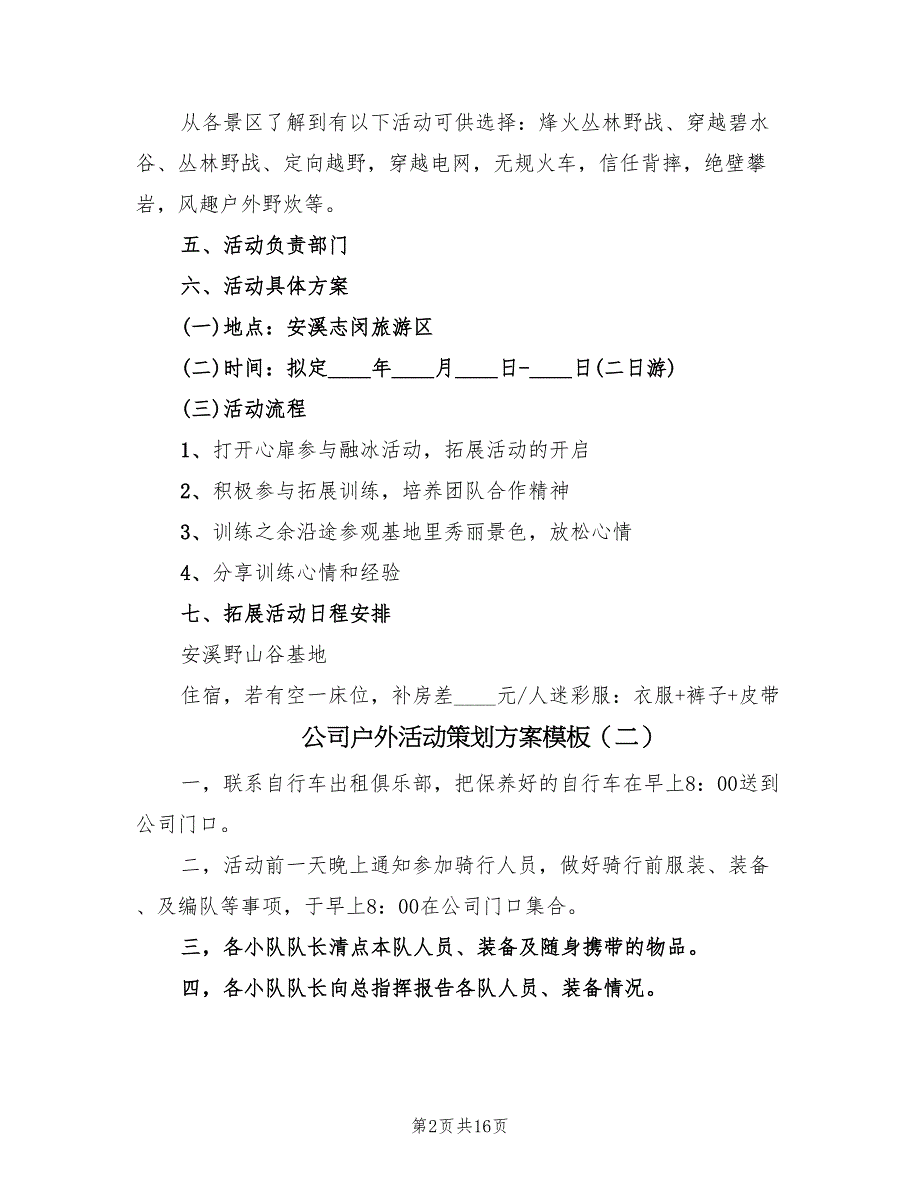 从各景区了解到有以下活动可供选择：烽火丛林野战、穿越碧水
谷、丛林野战、定向越野，穿越电网，无规火车，信任背摔，绝壁攀
岩，风趣户外野炊等。
五、活动负责部门
六、活动具体方案
(一)地点：安溪志闵旅游区
(二)时间：拟定____年____月____日-____日(二日游)
(三)活动流程
1、打开心扉参与融冰活动，拓展活动的开启
2、积极参与拓展训练，培养团队合作精神
3、训练之余沿途参观基地里秀丽景色，放松心情
4、分享训练心情和经验
七、拓展活动日程安排
安溪野山谷基地
住宿，若有空一床位，补房差____元/人迷彩服：衣服+裤子+皮带
公司户外活动策划方案模板（二）
一，联系自行车出租俱乐部，把保养好的自行车在早上8：00送到
公司门口。
二，活动前一天晚上通知参加骑行人员，做好骑行前服装、装备
、及编队等事项，于早上8：00在公司门口集合。
三，各小队队长清点本队人员、装备及随身携带的物品。
四，各小队队长向总指挥报告各队人员、装备情况。
第2页共16页